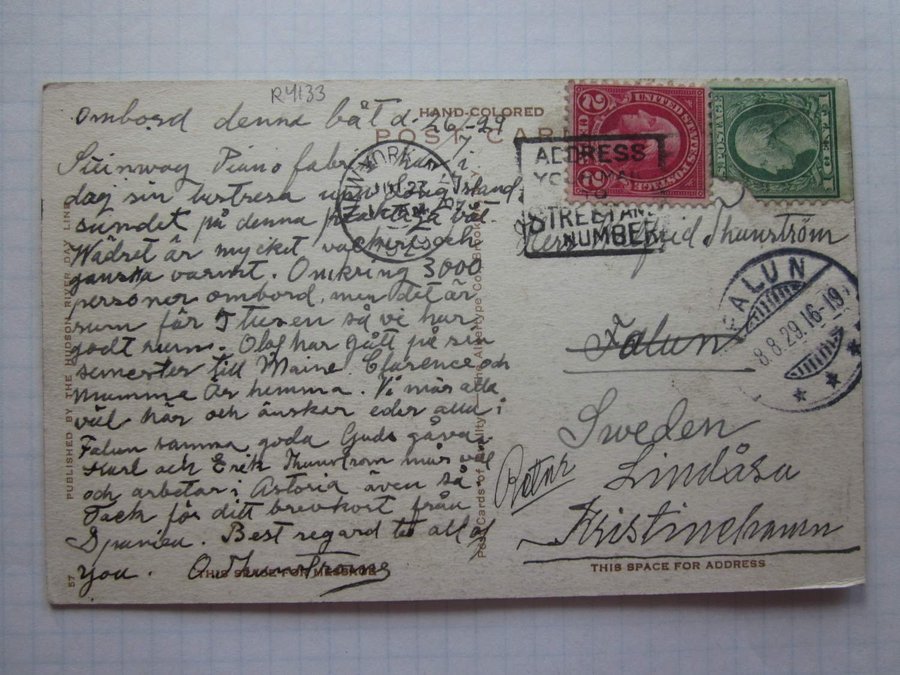 R4133
ombord denna båt d. 26/7-29
HAND-COLORED
POST CARD
Steinway Piano fabrik har i
dag sin lustresa uppå Long Island
sundet på denna båt.
Wädret är mycket vackert och
ganska varmt. Omkring 3000
personer ombord, men det är
rum för 5 tusen så vi har
godt rum. Olof har gått på sin
semester till Maine. Clarence och
mumma är hemma. Vi mår alla
väl här och önskar eder alla i
Falun samma goda Guds gåva
Karl och Erik Thunstrom mår väl
och arbetar i Astoria även så.
Tack för ditt brevkort från
Spanien. Best regard to all of
you.
THIS SPACE FOR MESSAGE
57 PUBLISHED BY THE HUDSON RIVER DAY LINE
Post Cards of Quality.
NEW YORK
ADDRESS
YOUR MAIL
TO
STREET AND
NUMBER
UNITED STATES POSTAGE
2 CENTS 2
1
Herr Thunström
FALUN
8.8.29.16-19
Falun
Sweden
Retur
Lindåsa
Kristinehamn
THIS SPACE FOR ADDRESS